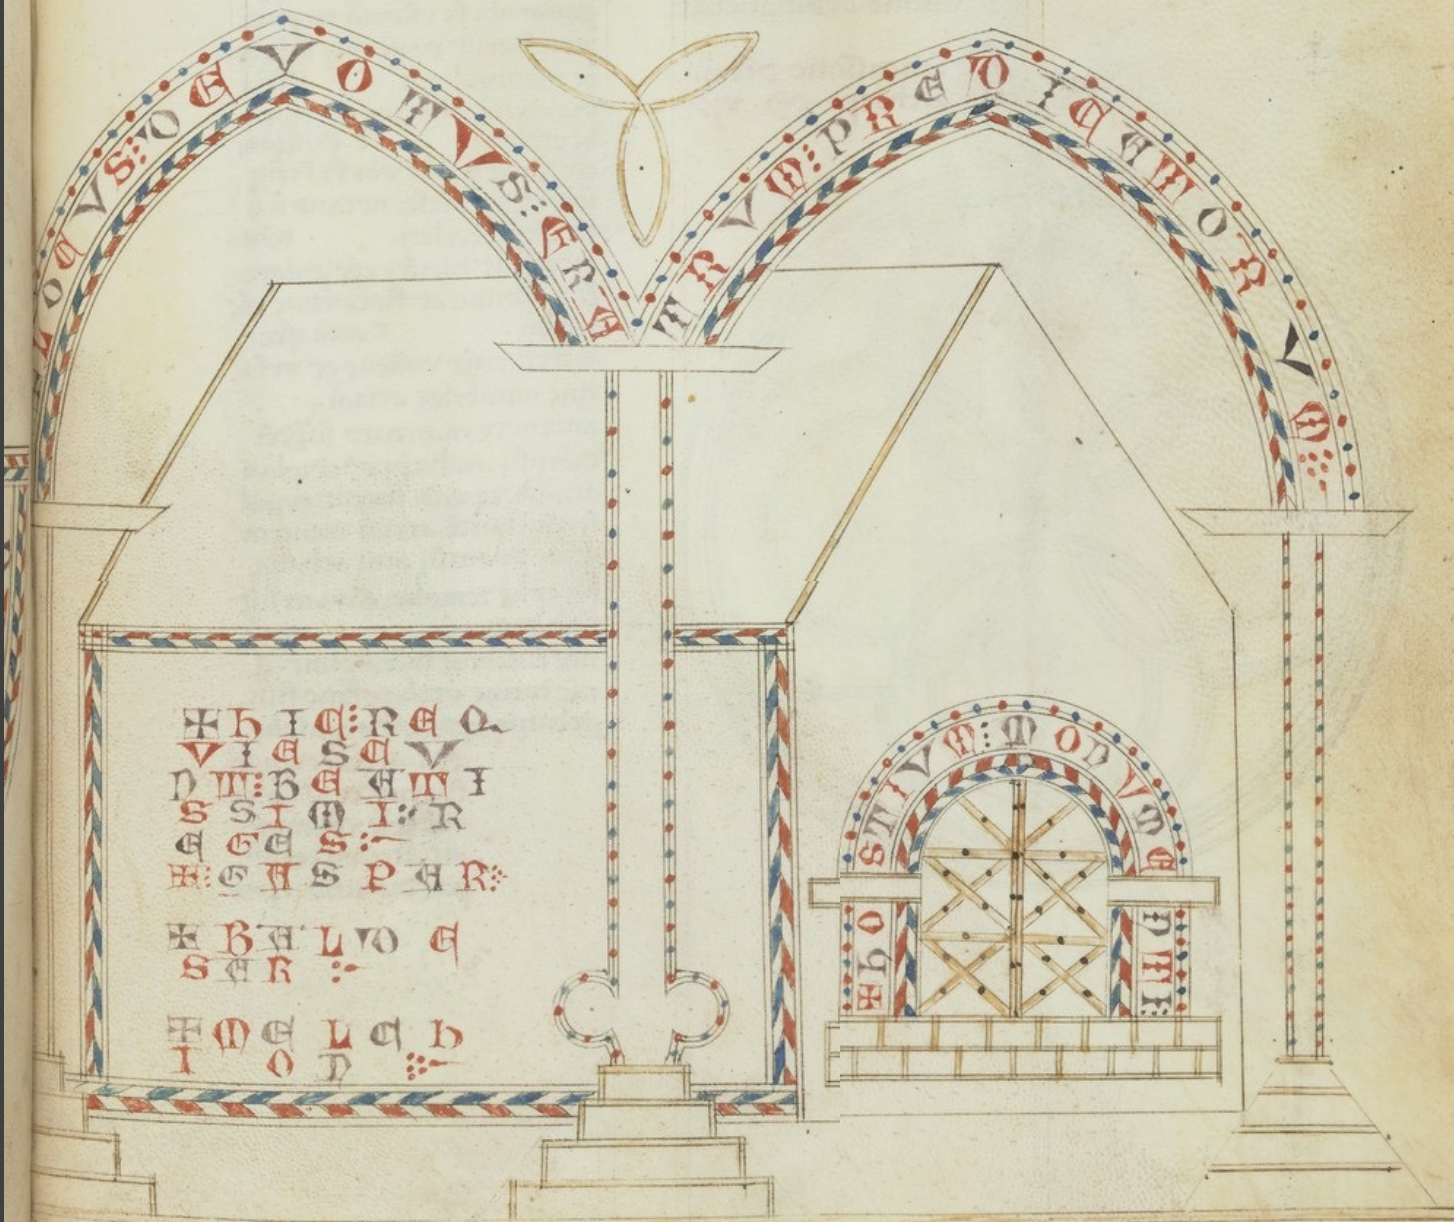 LOCVS:DEVOTVS:FRATRVM:PREDICATORVM
✠HIC:REQ
VIESCV
NT:BEATI
SSIMI:R
EGES:
✠:GASPAR:
✠BALDE
SER:
✠MELCH
ION
✠HOSTIVM:MONVMENTI: